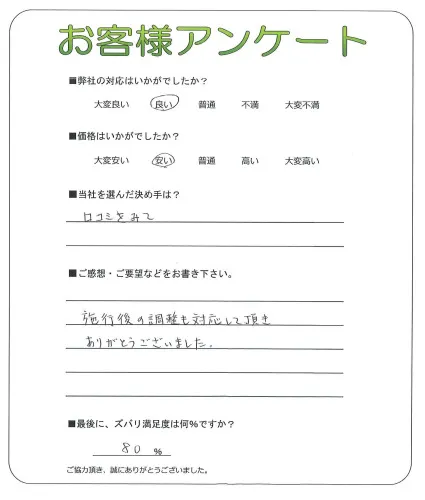 お客様アンケート
■弊社の対応はいかがでしたか？
大変良い 良い 普通 不満 大変不満
■価格はいかがでしたか？
大変安い 安い 普通 高い 大変高い
■当社を選んだ決め手は？
口コミをみて
■ご感想・ご要望などをお書き下さい。
施行後の調整も対応して頂き
ありがとうございました.
■最後に、ズバリ満足度は何%ですか？
80 %
ご協力頂き、誠にありがとうございました。